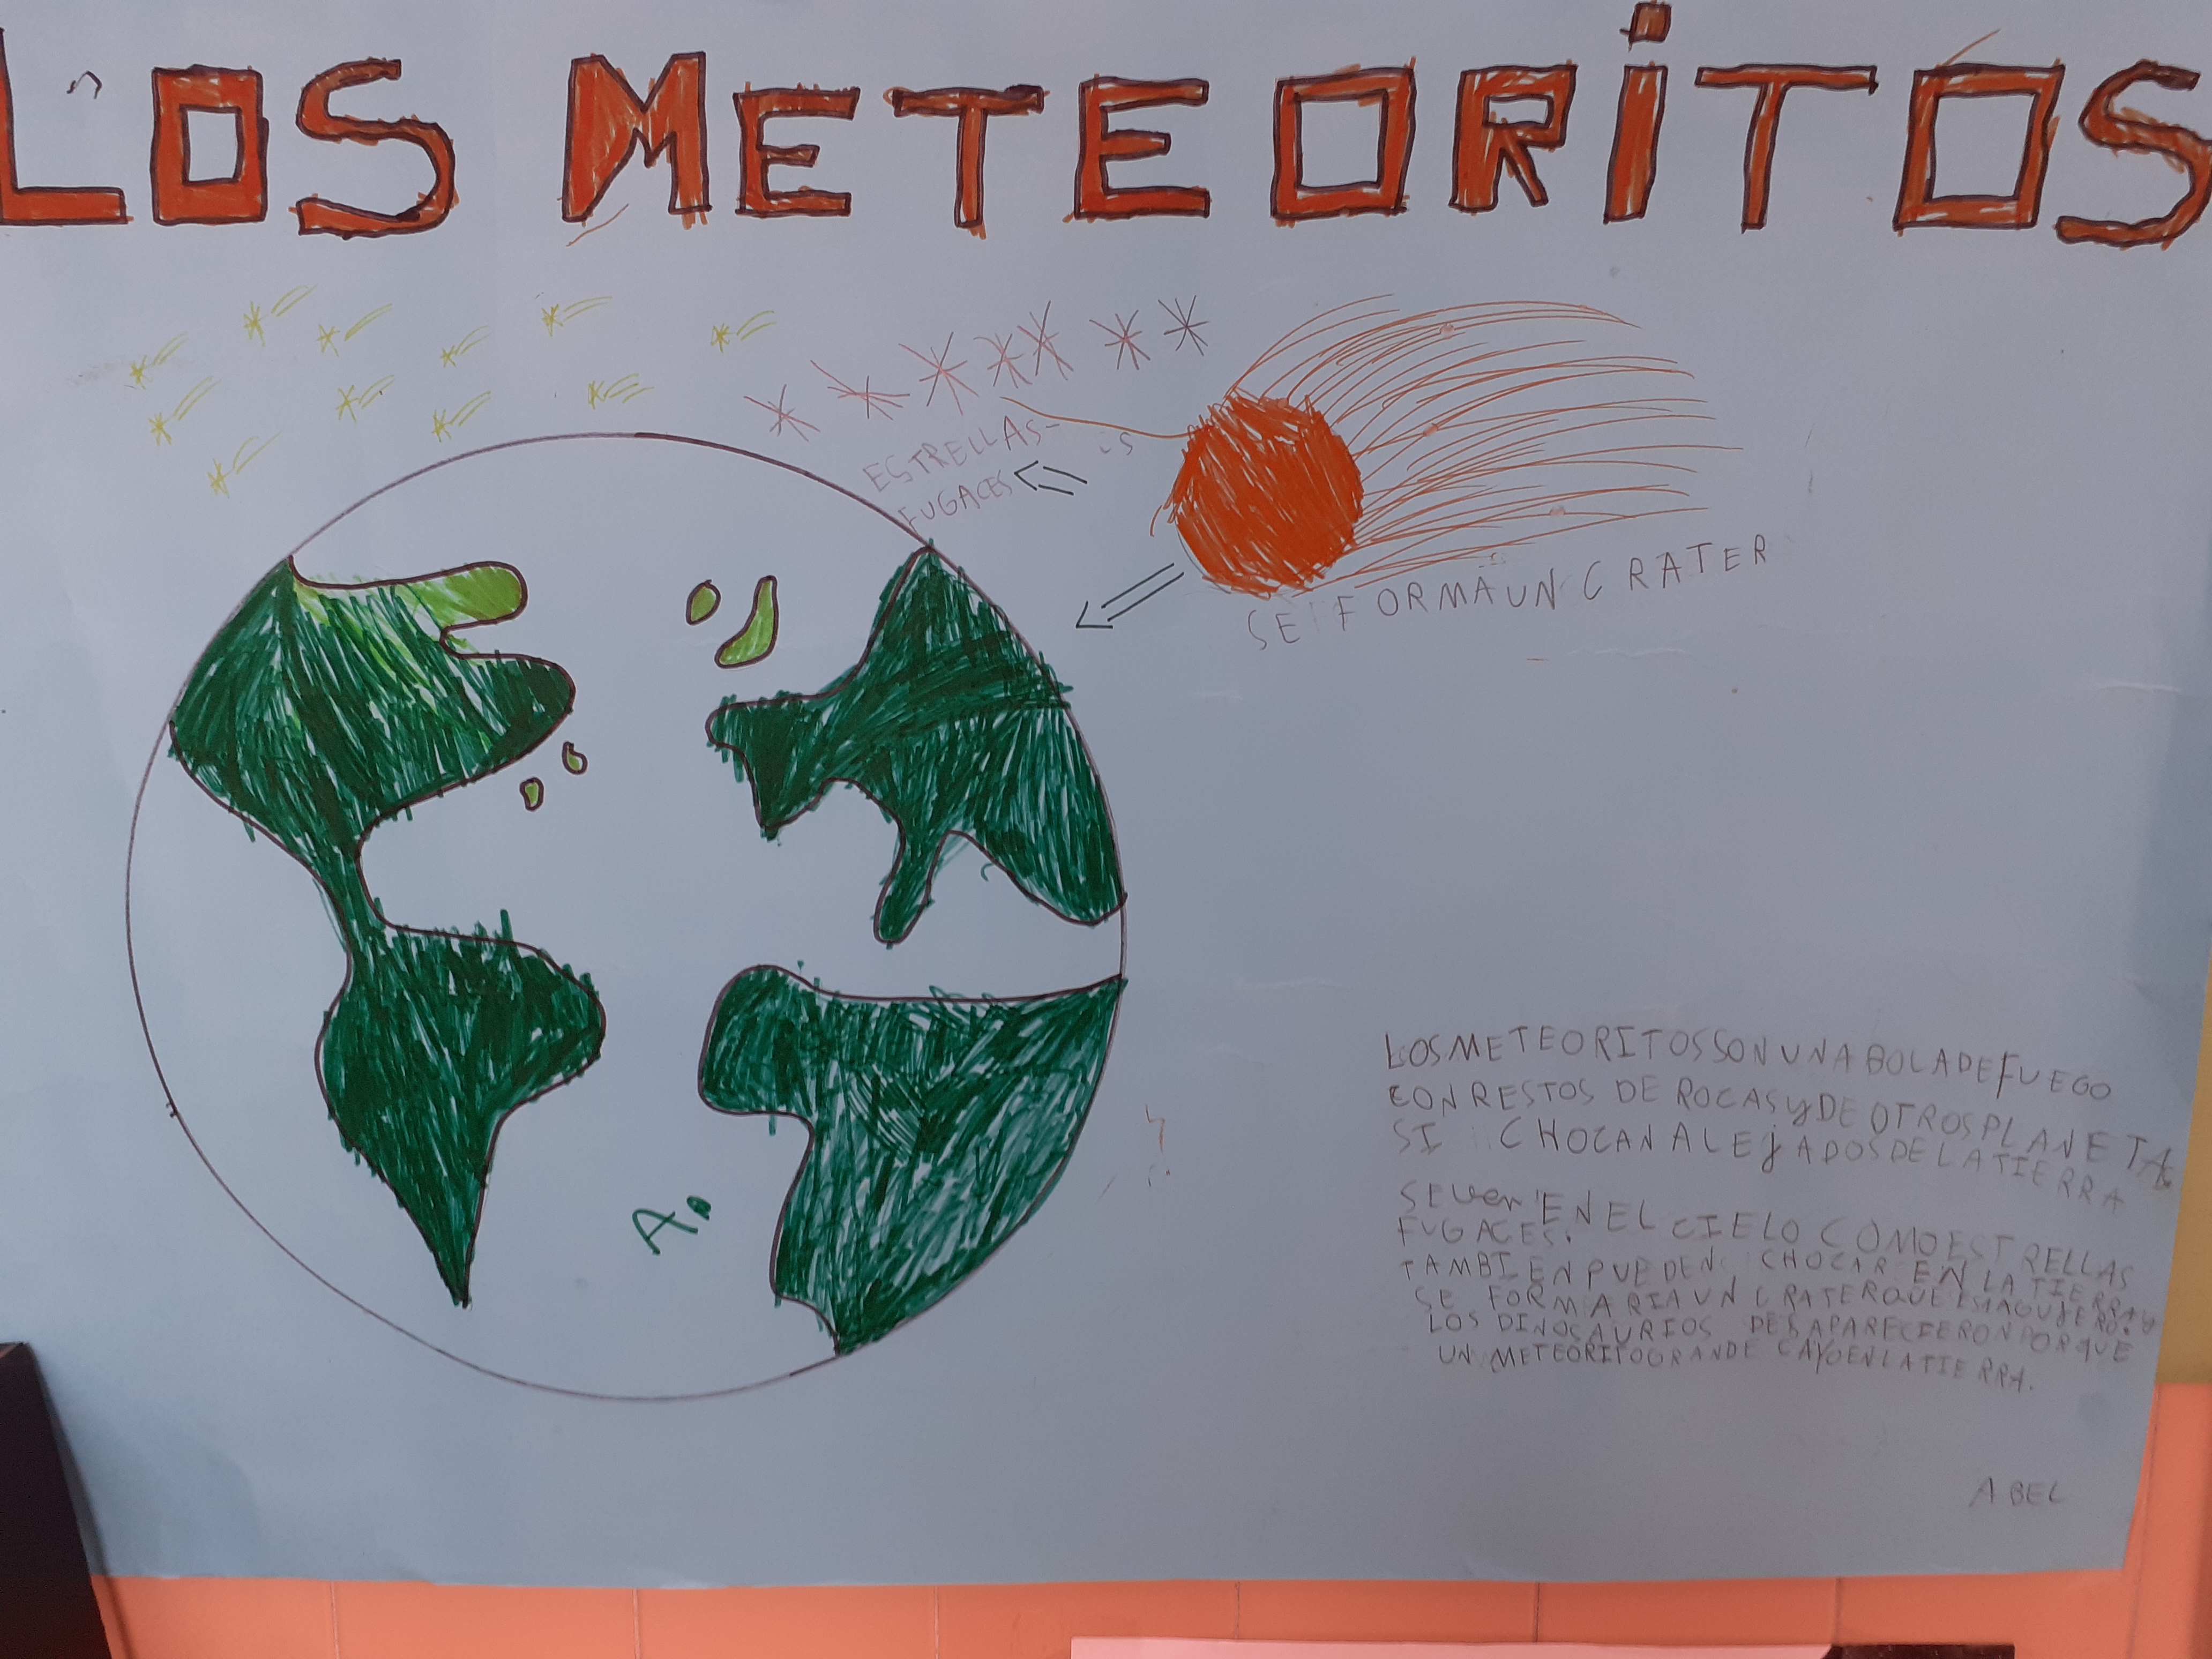 LOS METEORITOS
ESTRELLAS-
FUGACES
SE FORMA UN CRATER
LOS METEORITOS SON UNA BOLA DE FUEGO
CON RESTOS DE ROCAS Y DE OTROS PLANETAS
SI CHOCAN ALEJADOS DE LA TIERRA
SE VEN EN EL CIELO COMO ESTRELLAS
FUGACES.
TAMBIEN PUEDEN CHOCAR EN LA TIERRA Y
SE FORMARIA UN CRATER QUE ES 1 AGUJERO.
LOS DINOSAURIOS DESAPARECIERON PORQUE
UN METEORITO GRANDE CAYO EN LA TIERRA.
ABEL